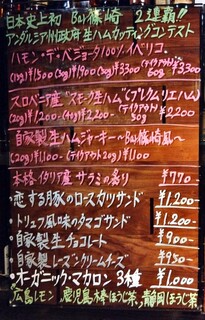 日本史上初 Bar篠崎 2連覇!!
アンダルシア州政府生ハムカッティングコンテスト
ハモン・デ・ベジョータ100%イベリコ
(10g)¥1,500 (20g)¥1,900 (40g)¥3,300 (テイクアウト) 50g ¥3,300
スロベニア産"スモーク生ハム"(プルシュリエハム)
(20g)¥1,200 (40g)¥2,200 (テイクアウト) 50g ¥2,200
自家製生ハムジャーキー〜Bar篠崎風〜
(20g)¥1,100 (テイクアウト20g)¥1,100
本格イタリア産サラミの炙り ¥770
・恋する豚のロースカツサンド ¥1,200-
・トリュフ風味のタマゴサンド ¥1,200-
・自家製生チョコレート ¥900-
・自家製レーズンクリームチーズ ¥950-
・オーガニック・マカロン 3種 ¥1,000
広島レモン、鹿児島棒ほうじ茶、静岡ほうじ茶